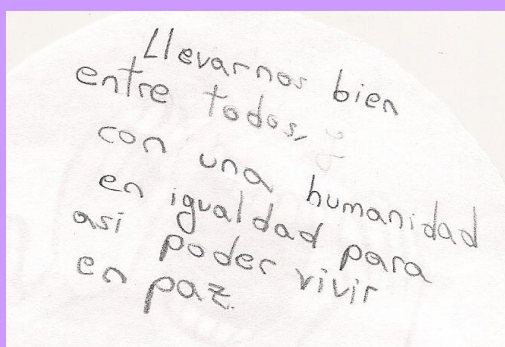 Llevarnos bien
entre todos,
con una humanidad
en igualdad para
asi poder vivir
en paz.